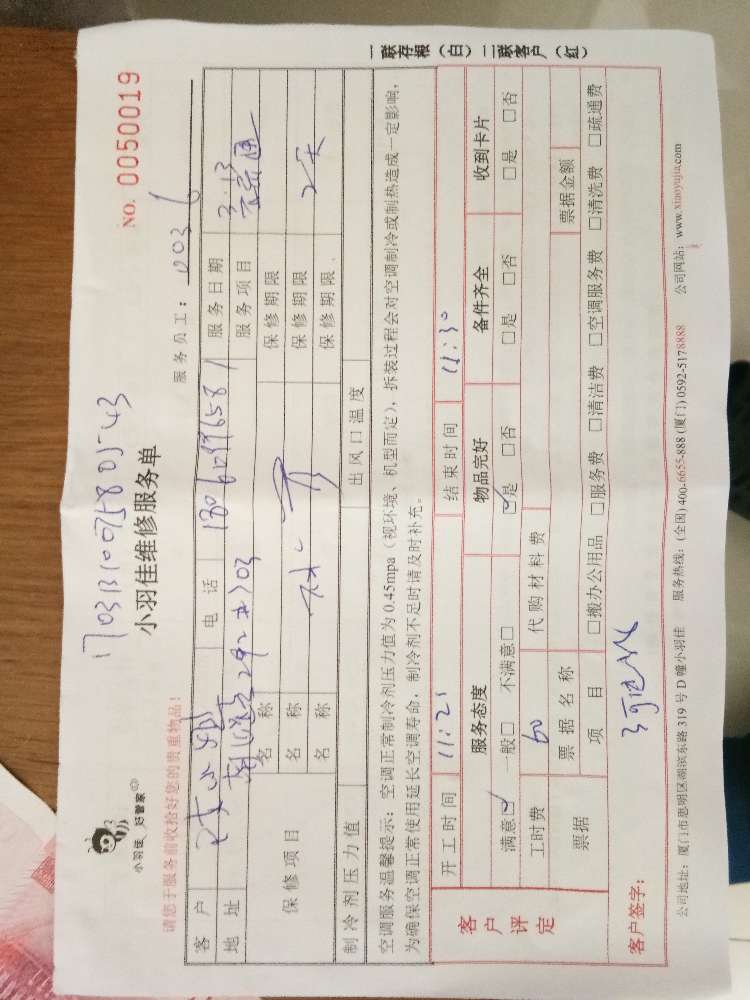 一联存根（白）二联客户（红）
NO. 0050019
小羽佳 好管家
小羽佳维修服务单
请您于服务前收拾好您的贵重物品！
服务员工：
客户 电话 服务日期 3.13
地址 服务项目
保修项目 名称 保修期限
名称 保修期限 2天
名称 保修期限
制冷剂压力值 出风口温度
空调服务温馨提示：空调正常制冷剂压力值为0.45mpa（视环境、机型而定），拆装过程会对空调制冷或制热造成一定影响，
为确保空调正常使用延长空调寿命，制冷剂不足时请及时补充。
客户评定
开工时间 11:21 结束时间 11:30
服务态度 物品完好 备件齐全 收到卡片
满意☑ 一般□ 不满意□ ☑是 □否 □是 □否 □是 □否
工时费 60 代购材料费
票据 票据名称 票据金额
项目 □搬办公用品 □服务费 □清洁费 □空调服务费 □清洗费 □疏通费
客户签字：
公司地址：厦门市思明区湖滨东路319号D幢小羽佳 服务热线：(全国) 400-6655-888 (厦门) 0592-5178888 公司网站：www.xiaoyujia.com